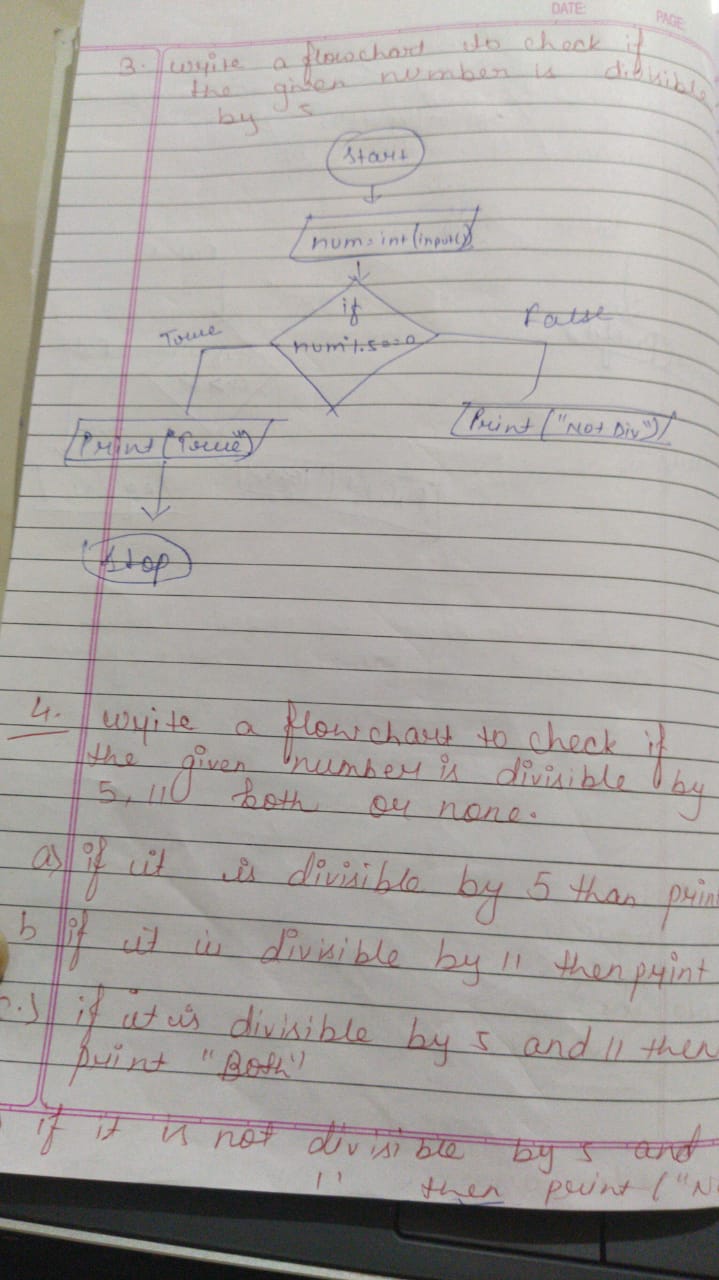 DATE:
PAGE:
3. Write a flowchart to check if
the given number is divisible
by 5
Start
num=int(input())
if
num%5==0
True
False
Print("True")
Print("Not Div")
Stop
4. Write a flowchart to check if
the given number is divisible by
5, 11 both or none.
a) if it is divisible by 5 than print
b if it is divisible by 11 then print
c.) if it is divisible by 5 and 11 then
print "Both"
if it is not divisible by 5 and
11 then print ("N